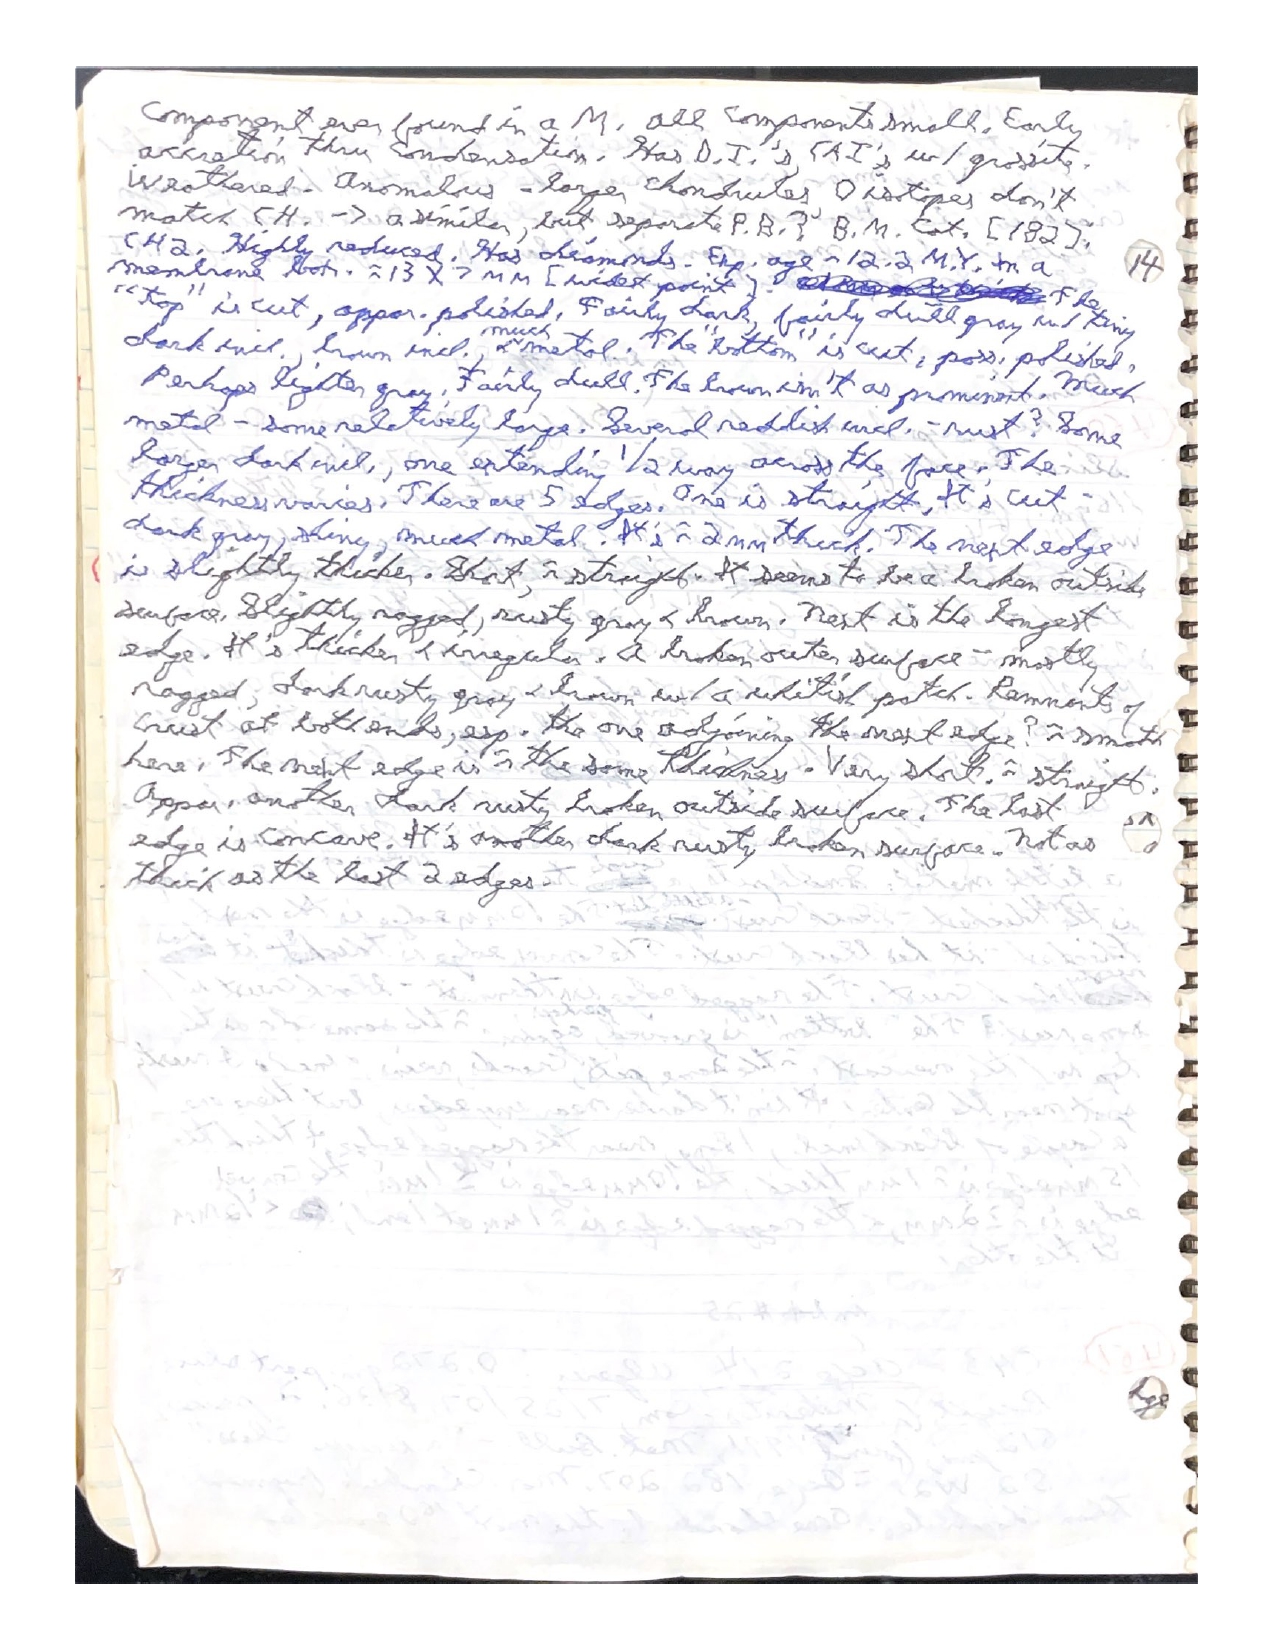 Component ever found in a M. all components small. Early
accretion thru condensation. Has D.I.'s, CAI's w/ grossite.
Weathered - Anomalous - larger chondrules O isotopes don't
match CH. -> a similar, but separate P.B.? B.M. Cat. [182]:
CH2. Highly reduced. Has diamonds. Exp. age ~ 12.2 M.Y. In a
membrane box. ~ 13 X 7 MM [widest point]. The
"top" is cut, appar. polished. Fairly dark, fairly dull gray w/ tiny
dark incl., brown incl., much metal. The "bottom" is cut, poss. polished.
Perhaps lighter gray. Fairly dull. The brown isn't as prominent. Much
metal - some relatively large. Several reddish incl. - rust? Some
larger dark incl., one extending 1/2 way across the face. The
thickness varies. There are 5 edges. One is straight, It's cut -
dark gray, shiny, much metal. It's ~ 2 mm thick. The next edge
is slightly thicker. Short, ~ straight. It seems to be a broken outside
surface. Slightly ragged, rusty gray & brown. Next is the longest
edge. It's thicker & irregular. A broken outer surface - mostly
ragged, dark rusty gray & brown w/ a whitish patch. Remnants of
crust at both ends, esp. the one adjoining the next edge? ~ smooth
here. The next edge is ~ the same thickness. Very short. ~ straight.
Appar. another dark rusty broken outside surface. The last
edge is concave. It's another dark rusty broken surface. Not as
thick as the last 2 edges.
14
lge